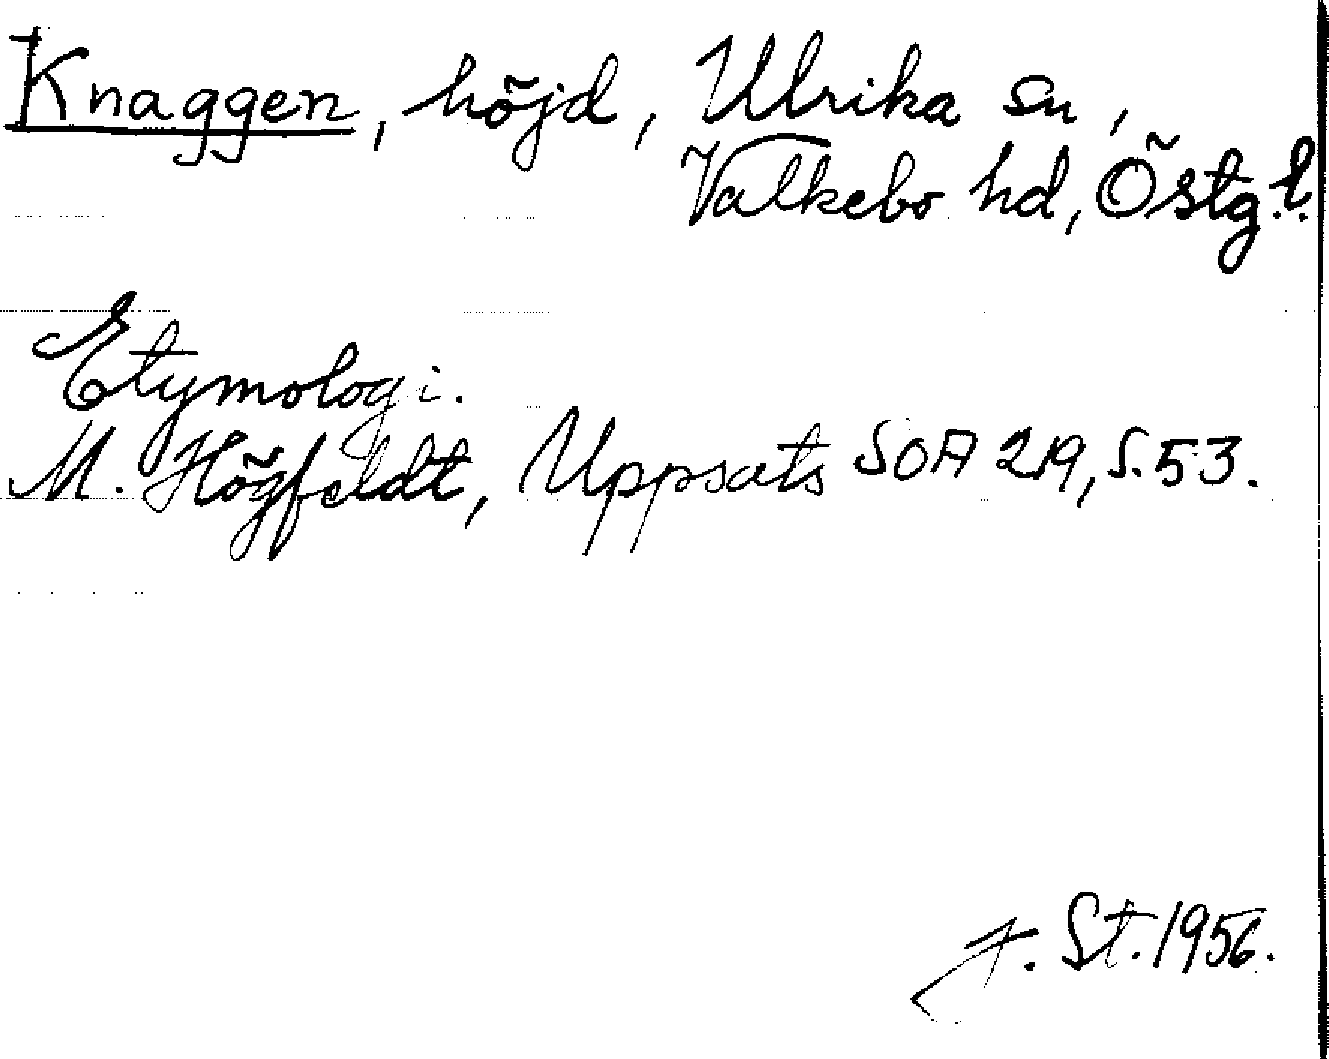 Knaggen, höjd, Ulrika sn,
Valkebo hd, Östg.l.
Etymologi.
M. Högfeldt, Uppsats SOA 219, S. 53.
St. 1956.